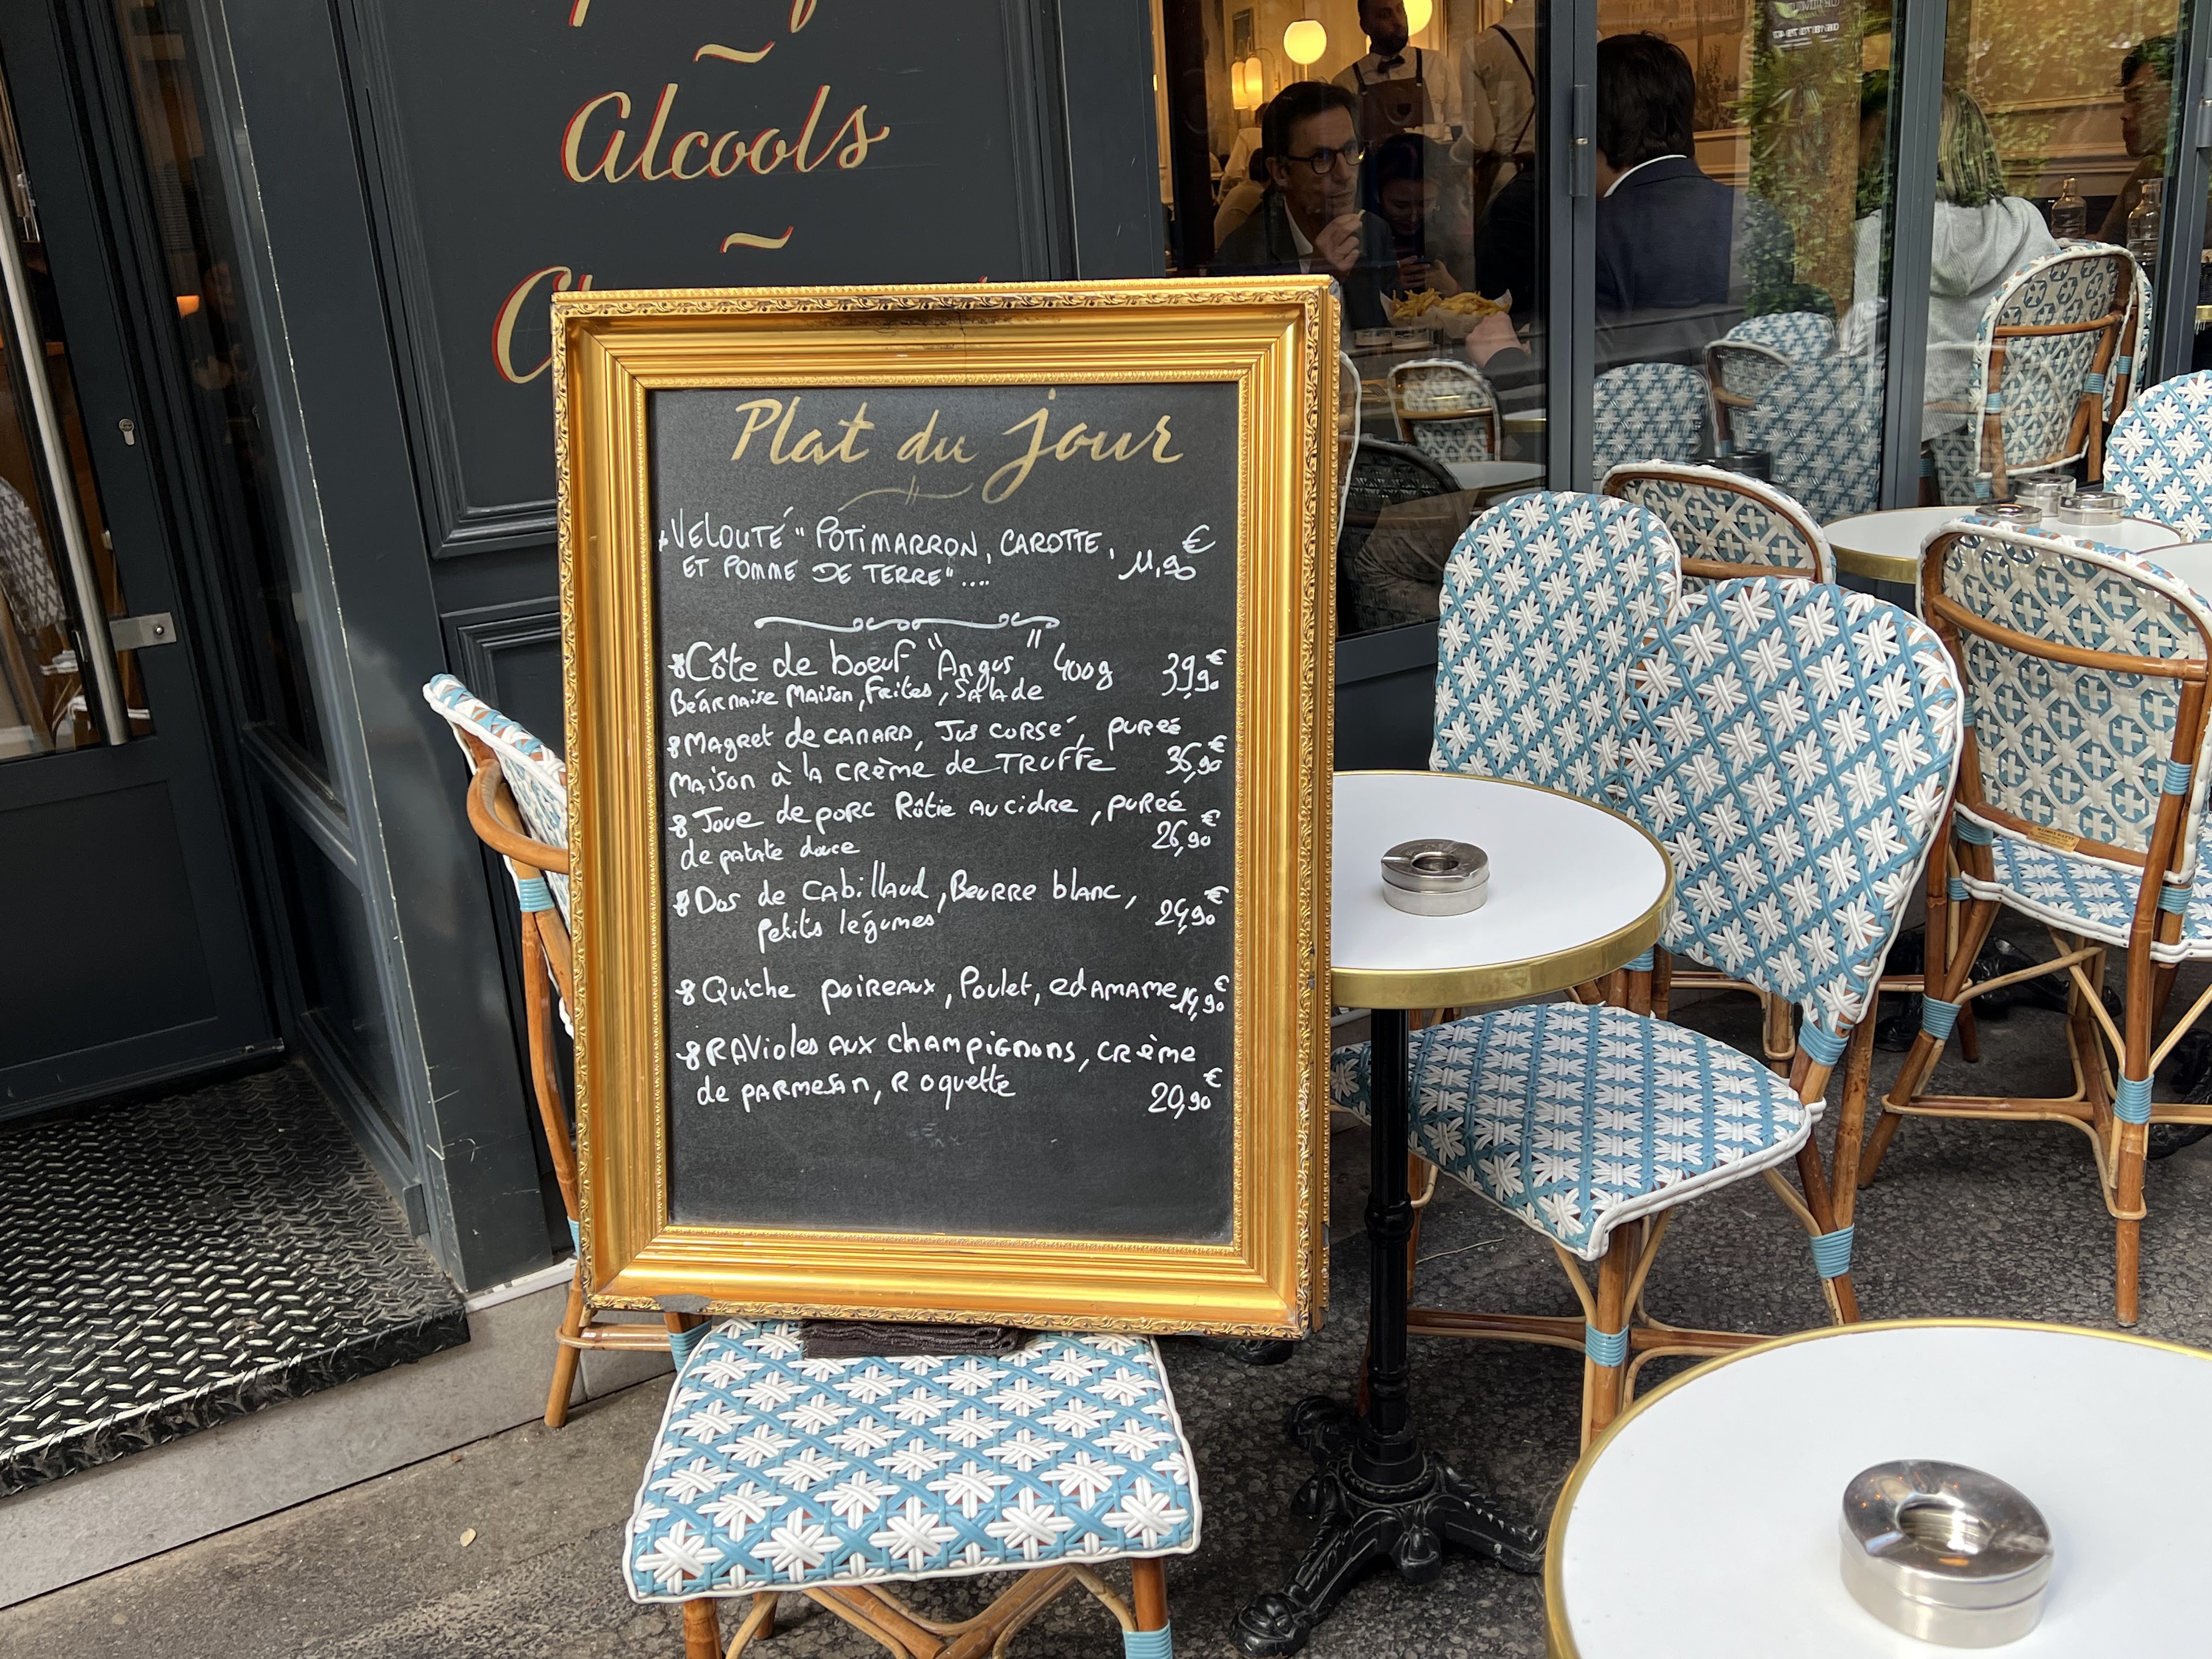 Alcools
Plat du jour
VELOUTÉ "POTIMARRON, CAROTTE,
ET POMME DE TERRE".... 11,90€
Côte de boeuf "Angus" 400g 39,90€
Béarnaise Maison, Frites, Salade
Magret de canard, Jus corsé, pureé
Maison à la crème de Truffe 36,90€
Joue de porc Rôtie au cidre, pureé
de patate douce 26,90€
Dos de Cabillaud, Beurre blanc,
petits légumes 24,90€
Quiche poireaux, Poulet, edamame 14,90€
RAVioles aux champignons, crème
de parmesan, Roquette 20,90€